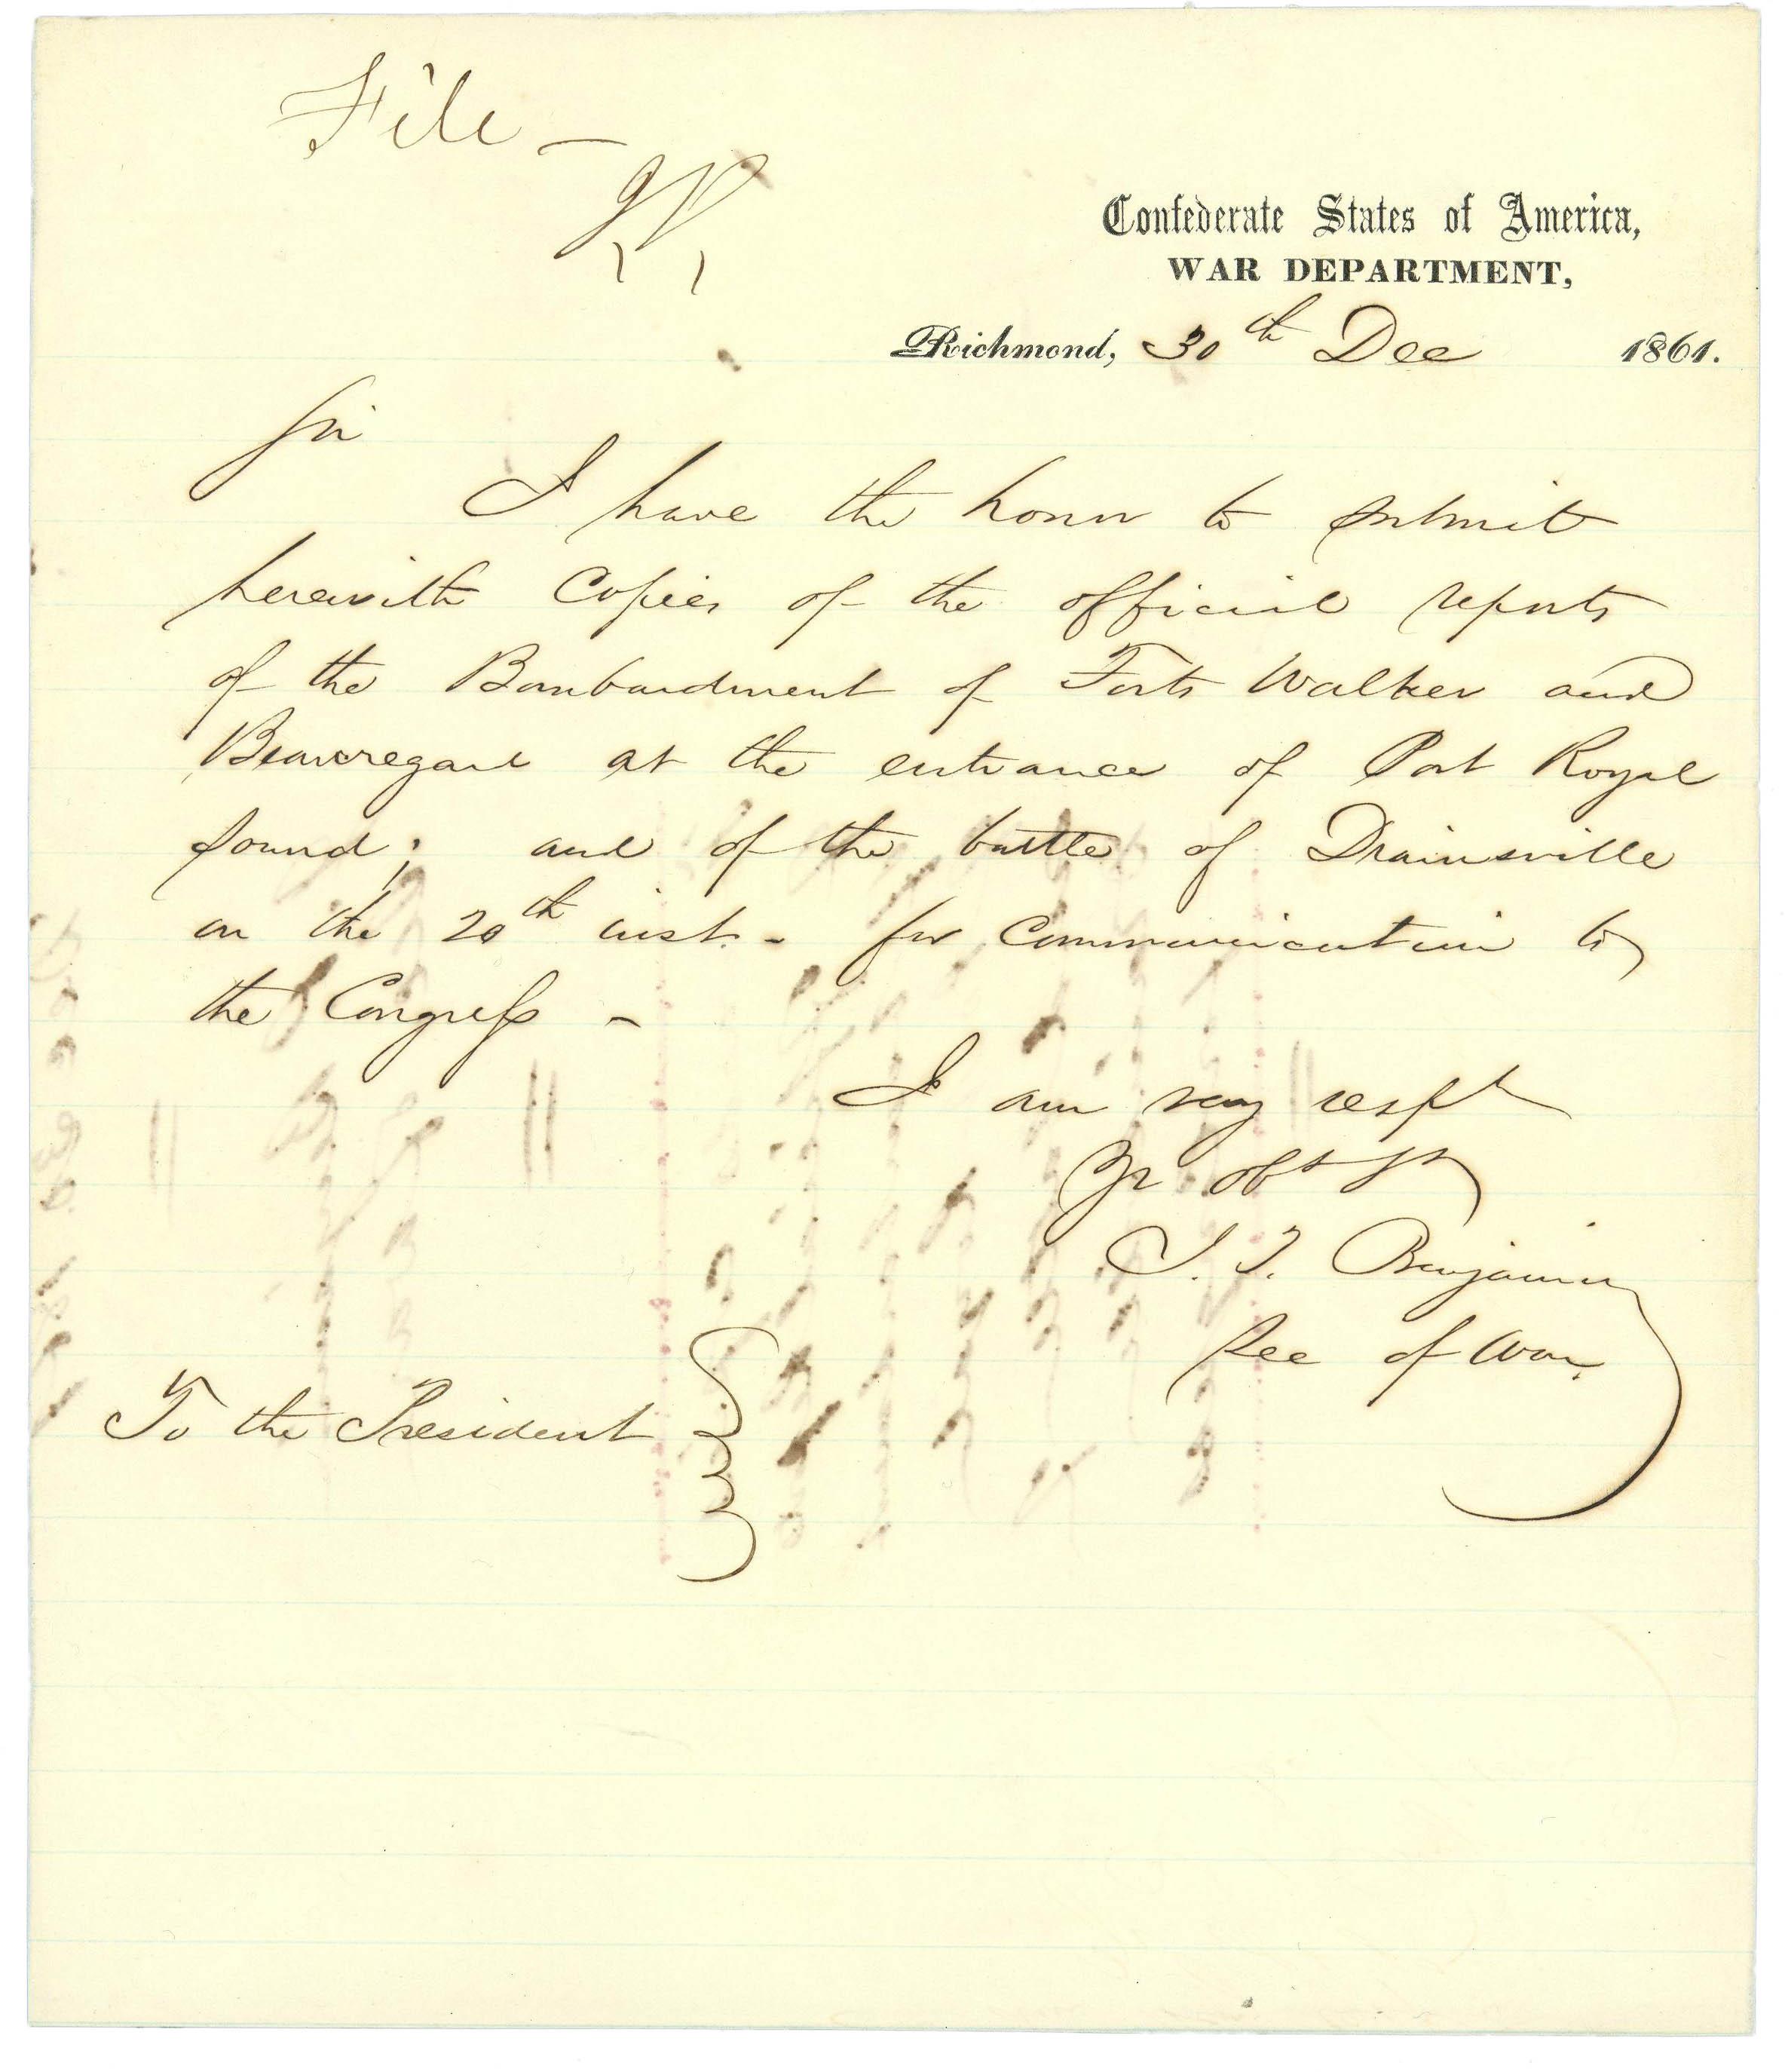 File —
Confederate States of America,
WAR DEPARTMENT,
Richmond, 30th Dec 1861.
Sir
I have the honor to submit
herewith Copies of the official reports
of the Bombardment of Forts Walker and
Beauregard at the entrance of Port Royal
Sound; and of the battle of Drainsville
on the 20th inst. - for Communication to
the Congress -
I am very respy
Yr obt St
J. P. Benjamin
Sec of War.
To the President